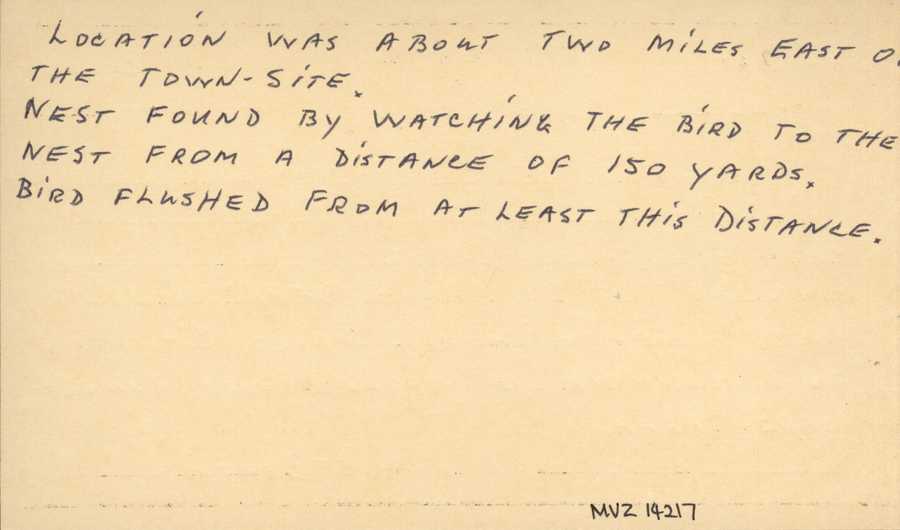 LOCATION WAS ABOUT TWO MILES EAST O
THE TOWN-SITE.
NEST FOUND BY WATCHING THE BIRD TO THE
NEST FROM A DISTANCE OF 150 YARDS.
BIRD FLUSHED FROM AT LEAST THIS DISTANCE.
MVZ 14217